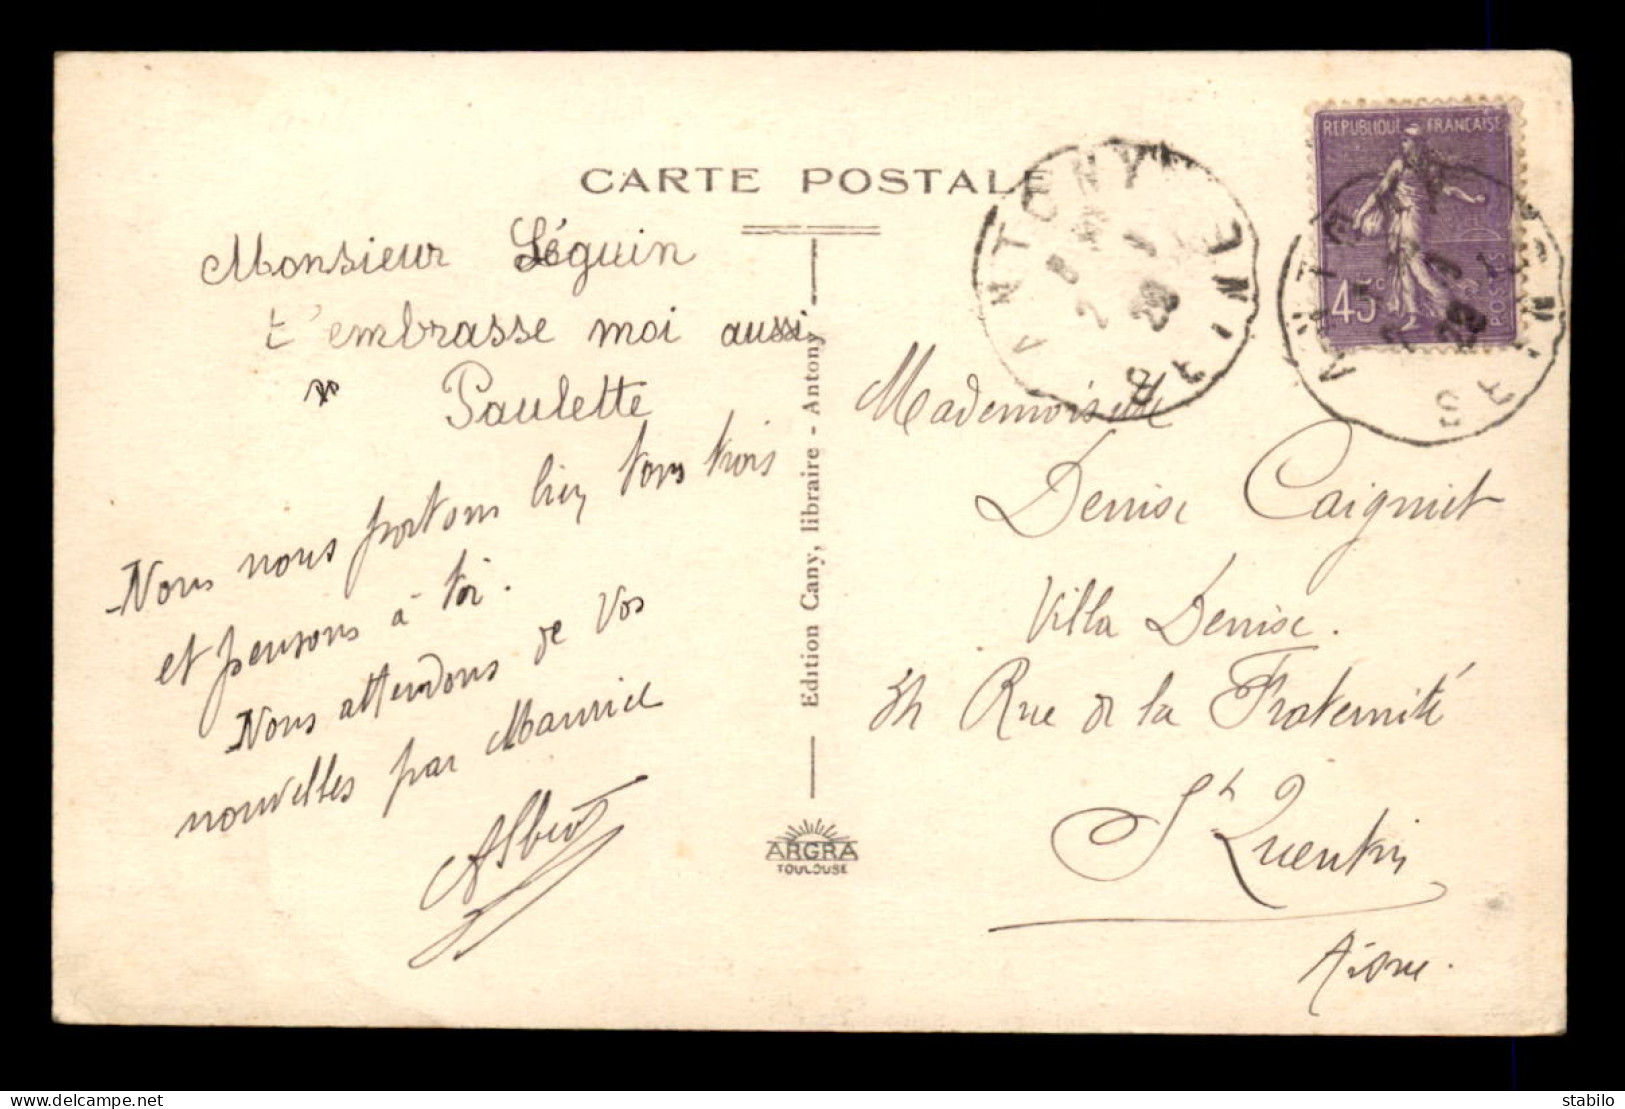 CARTE POSTALE
Monsieur Séguin
t'embrasse moi aussi
Paulette
Nous nous portons bien tous trois
et pensons à toi.
Nous attendons de vos
nouvelles par Maurice
Albert
Edition Cany, libraire - Antony
ARGRA
TOULOUSE
ANTONY
SEINE
REPUBLIQUE FRANÇAISE
45c
POSTES
ANTONY
SEINE
Mademoiselle
Denise Caigniet
Villa Denise.
Rue de la Fraternité
St Quentin
Aisne.
www.delcampe.net
stabilo